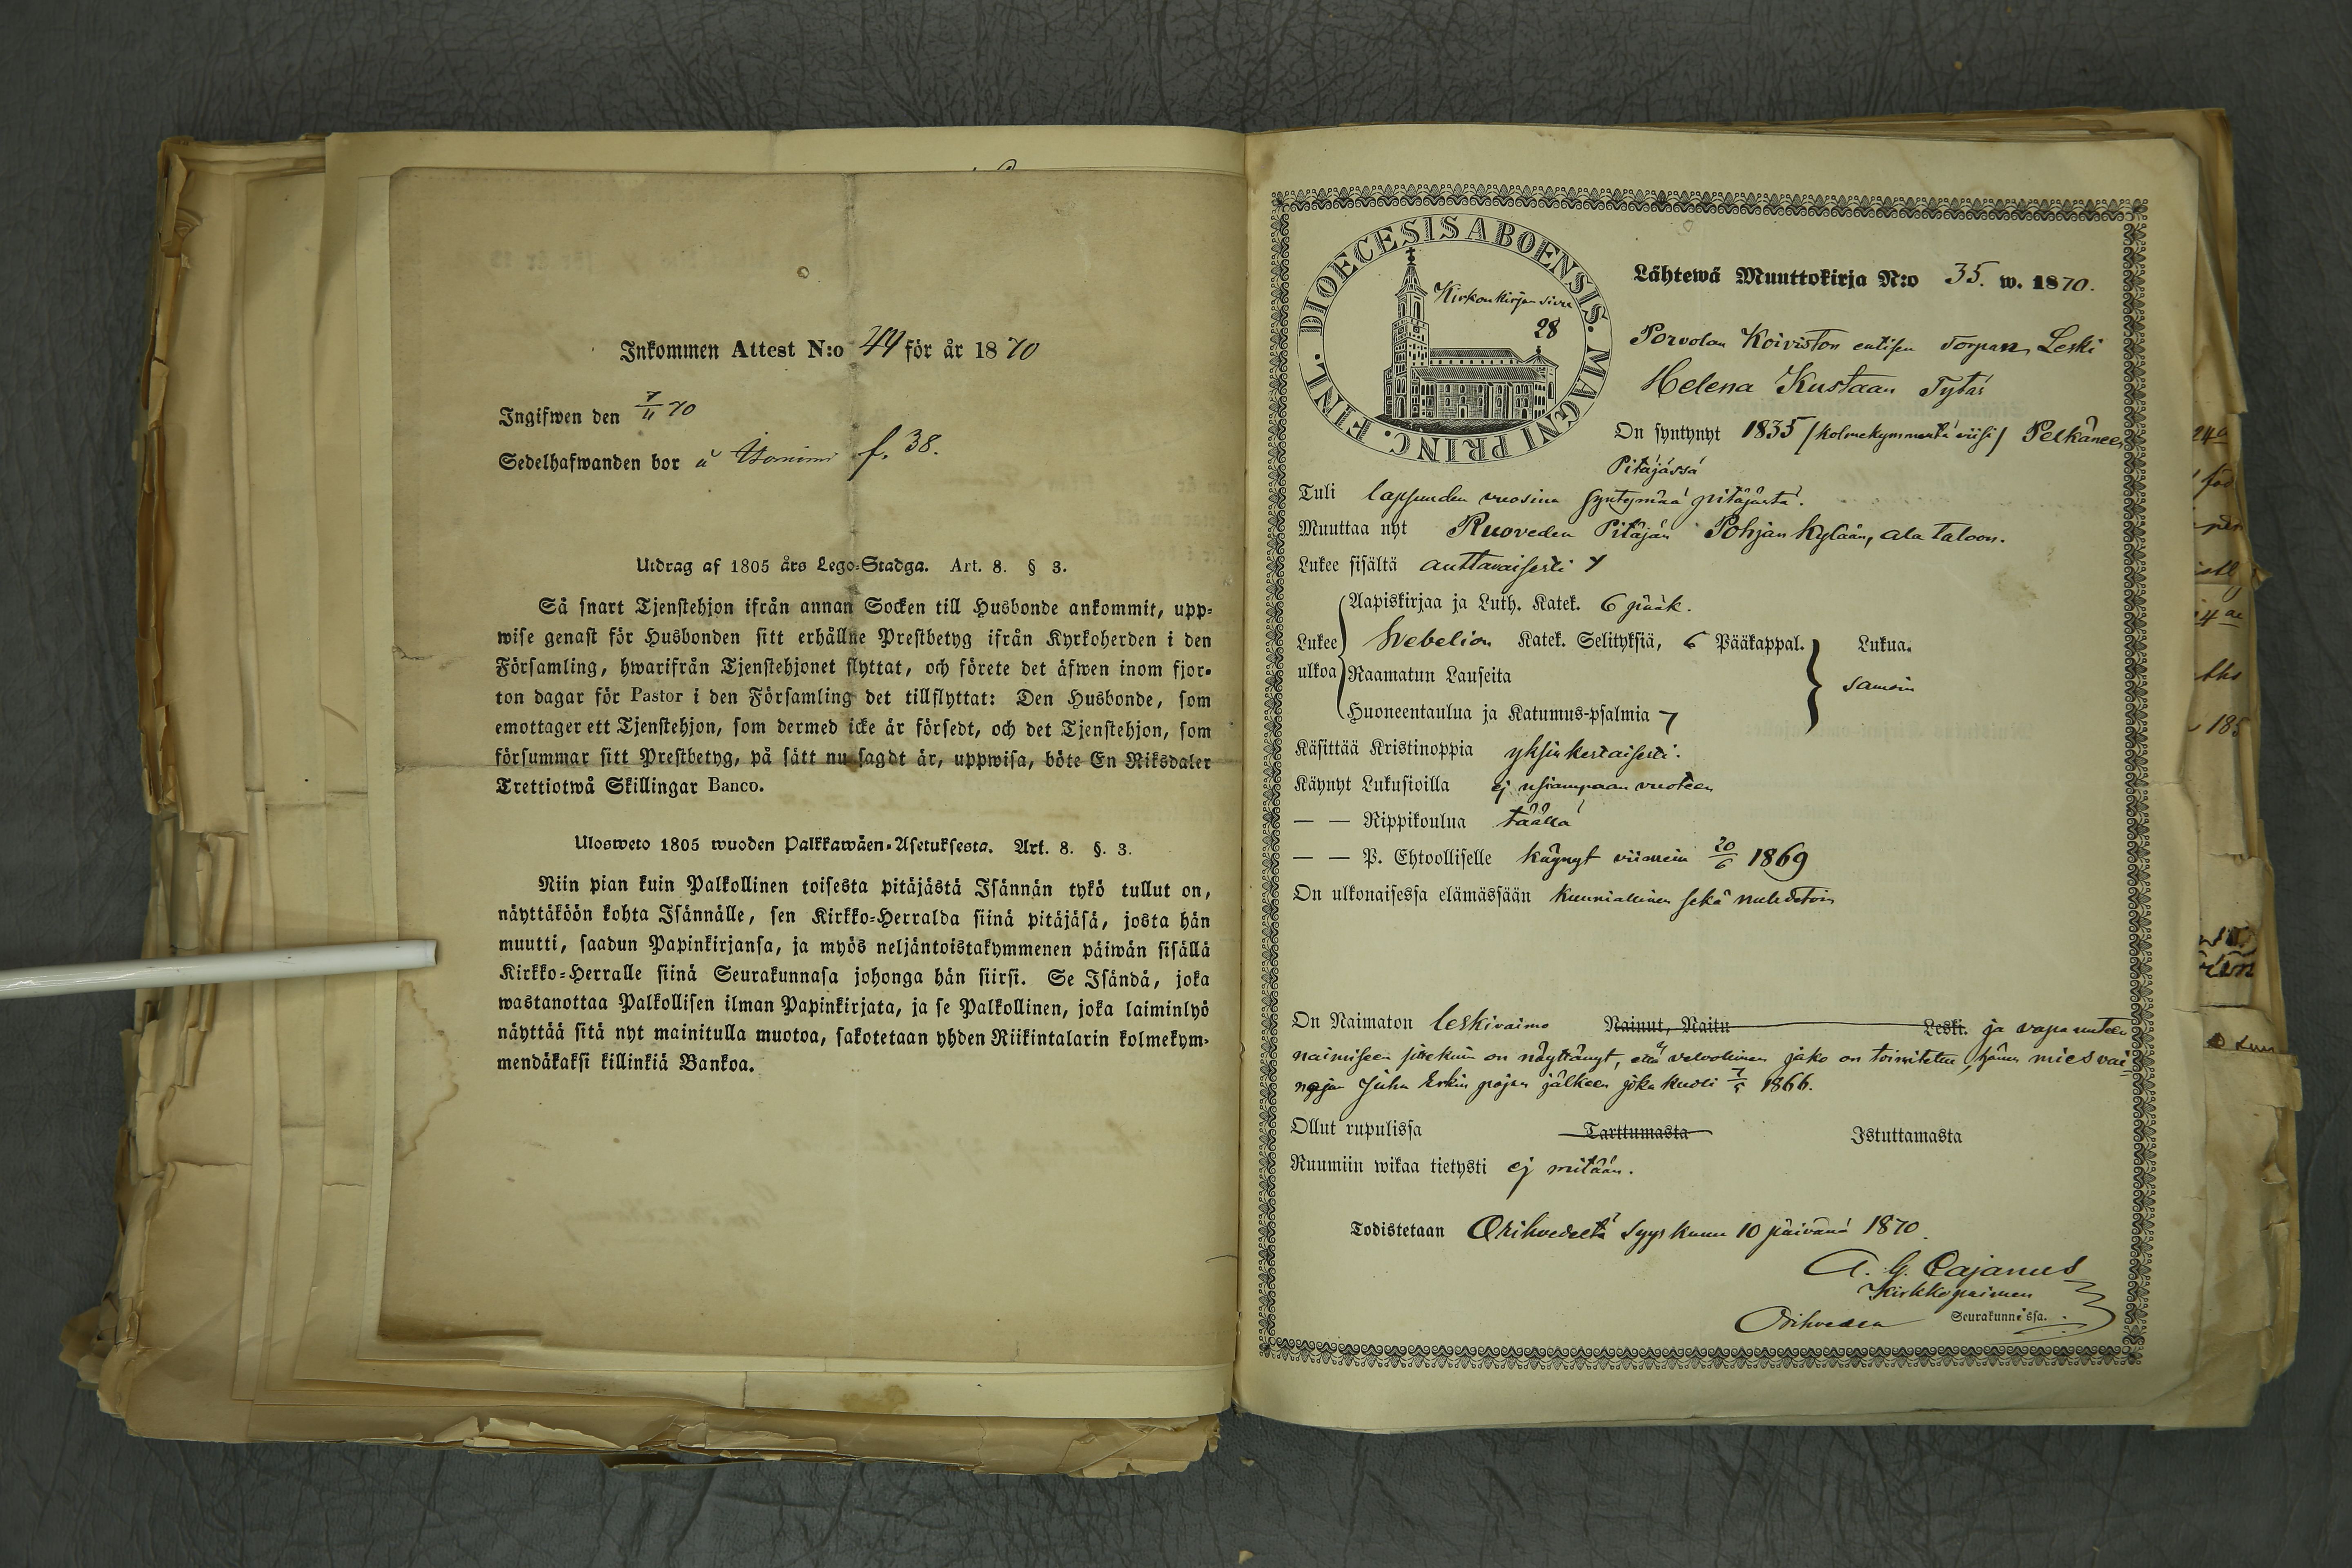 Inkommen Attest N:o 44 för år 1870
Ingifwen den 7/11 70
Sedelhafwanden bor å f. 38.
Utdrag af 1805 års Lego-Stadga. Art. 8. § 3.
Så snart Tjenstehjon ifrån annan Socken till Husbonde ankommit, upp-
wise genast för Husbonden sitt erhållne Prestbetyg ifrån Kyrkoherden i den
Församling, hwarifrån Tjenstehjonet flyttat, och förete det äfwen inom fjor-
ton dagar för Pastor i den Församling det tillflyttat: Den Husbonde, som
emottager ett Tjenstehjon, som dermed icke är försedt, och det Tjenstehjon, som
försummar sitt Prestbetyg, på sätt nu sagdt är, uppwisa, böte En Riksdaler
Trettiotwå Skillingar Banco.
Ulosweto 1805 wuoden Palkkawäen-Asetuksesta. Art. 8. §. 3.
Niin pian kuin Palkollinen toisesta pitäjästä Isännän tykö tullut on,
näyttäköön kohta Isännälle, sen Kirkko-Herralda siinä pitäjäsä, josta hän
muutti, saadun Papinkirjansa, ja myös neljäntoistakymmenen päiwän sisällä
Kirkko-Herralle siinä Seurakunnasa johonga hän siirsi. Se Isändä, joka
wastanottaa Palkollisen ilman Papinkirjata, ja se Palkollinen, joka laiminlyö
näyttää sitä nyt mainitulla muotoa, sakotetaan yhden Riikintalarin kolmekym-
mendäkaksi killinkiä Bankoa.
FINL. DIOECESIS ABOENSIS. MAGNI PRINC.
Kirkonkirjan sivu
28
Lähtewä Muuttokirja N:o 35. w. 1870.
Porvolan Koiviston entisen Torpan Leski
Helena Kustaan Tytär
On syntynyt 1835 /kolmekymmentä viisi/ Pelkäneen
Pitäjässä
Tuli lapsuuden vuosina syntymää pitäjästä.
Muuttaa nyt Ruoveden Pitäjän Pohjan kylään, ala taloon.
Lukee sisältä auttavaisesti
Aapiskirjaa ja Luth. Katek. 6 pääk.
Lukee Svebelion Katek. Selityksiä, 6 Pääkappal. Lukua.
ulkoa Raamatun Lauseita samoin
Huoneentaulua ja Katumus-psalmia 7
Käsittää Kristinoppia yksinkertaisesti.
Käynyt Lukusioilla ej usiampaan vuoteen
— — Rippikoulua täällä
— — P. Ehtoolliselle käynyt viimein 20/6 1869
On ulkonaisessa elämässään kunniallinen sekä nuhdetoin
On Naimaton leskivaimo Nainut, Naitu Leski. ja vapa uuteen
naimiseen sittekuin on näyttänyt, että velvollinen jako on toimitettu, hänen miesvai-
najan Juha Erkin pojan jälkeen joka kuoli 7/5 1866.
Ollut rupulissa Tarttumasta Istuttamasta
Ruumiin wikaa tietysti ej mitään.
Todistetaan Orihvedeltä Syyskuun 10 päivänä 1870.
A. G. Cajanus
Kirkkopaimen
Orihveden Seurakunnassa.